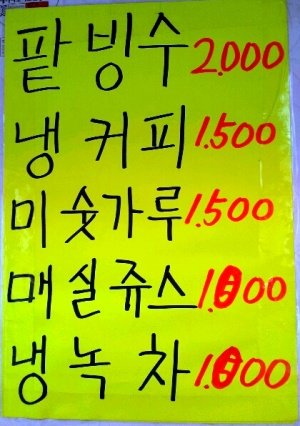 팥빙수 2.000
냉커피 1.500
미숫가루 1.500
매실쥬스 1.000
냉녹차 1.000